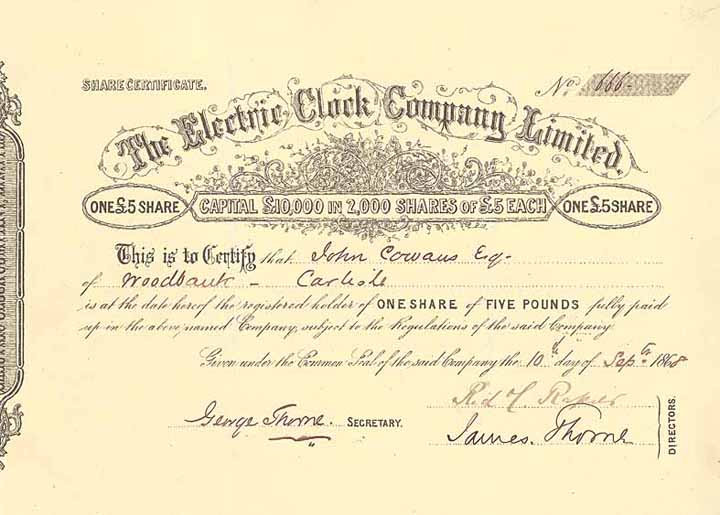 SHARE CERTIFICATE.
No. 666.
The Electric Clock Company Limited.
ONE £5 SHARE
CAPITAL £10,000 IN 2,000 SHARES OF £5 EACH
ONE £5 SHARE
This is to Certify that John Cowans Esq.
of Woodbank - Carlisle
is at the date hereof the registered holder of ONE SHARE of FIVE POUNDS fully paid
up in the above named Company, subject to the Regulations of the said Company.
Given under the Common Seal of the said Company the 10th day of Sepr. 1868
George Thorne SECRETARY.
James Thorne
DIRECTORS.